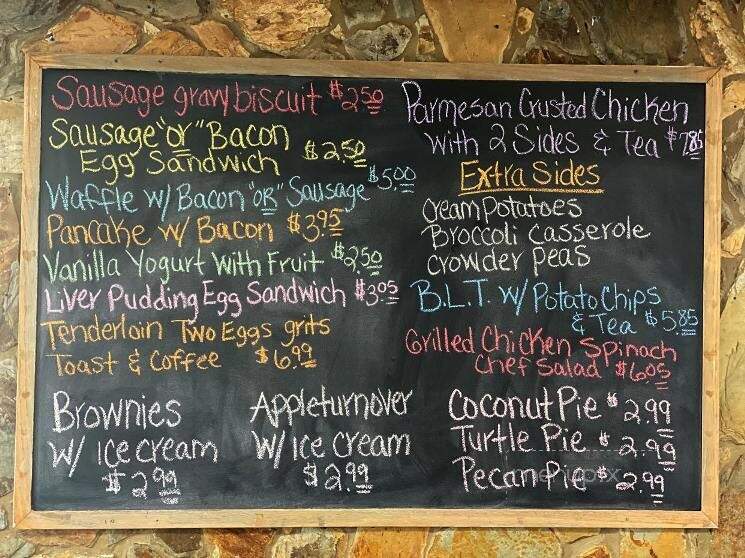 Sausage gravy biscuit $2.50
Sausage "or" Bacon
Egg Sandwich $2.50
Waffle w/ Bacon "OR" Sausage $5.00
Pancake w/ Bacon $3.95
Vanilla Yogurt with Fruit $2.50
Liver Pudding Egg Sandwich $3.05
Tenderloin Two Eggs grits
Toast & Coffee $6.99
Brownies
w/ Ice cream
$2.99
Appleturnover
w/ Ice cream
$2.99
Parmesan Crusted Chicken
with 2 Sides & Tea $7.85
Extra Sides
Cream Potatoes
Broccoli casserole
crowder peas
B.L.T. w/ Potato Chips
& Tea $5.85
Grilled Chicken Spinach
Chef Salad $6.05
Coconut Pie $2.99
Turtle Pie $2.99
Pecan Pie $2.99